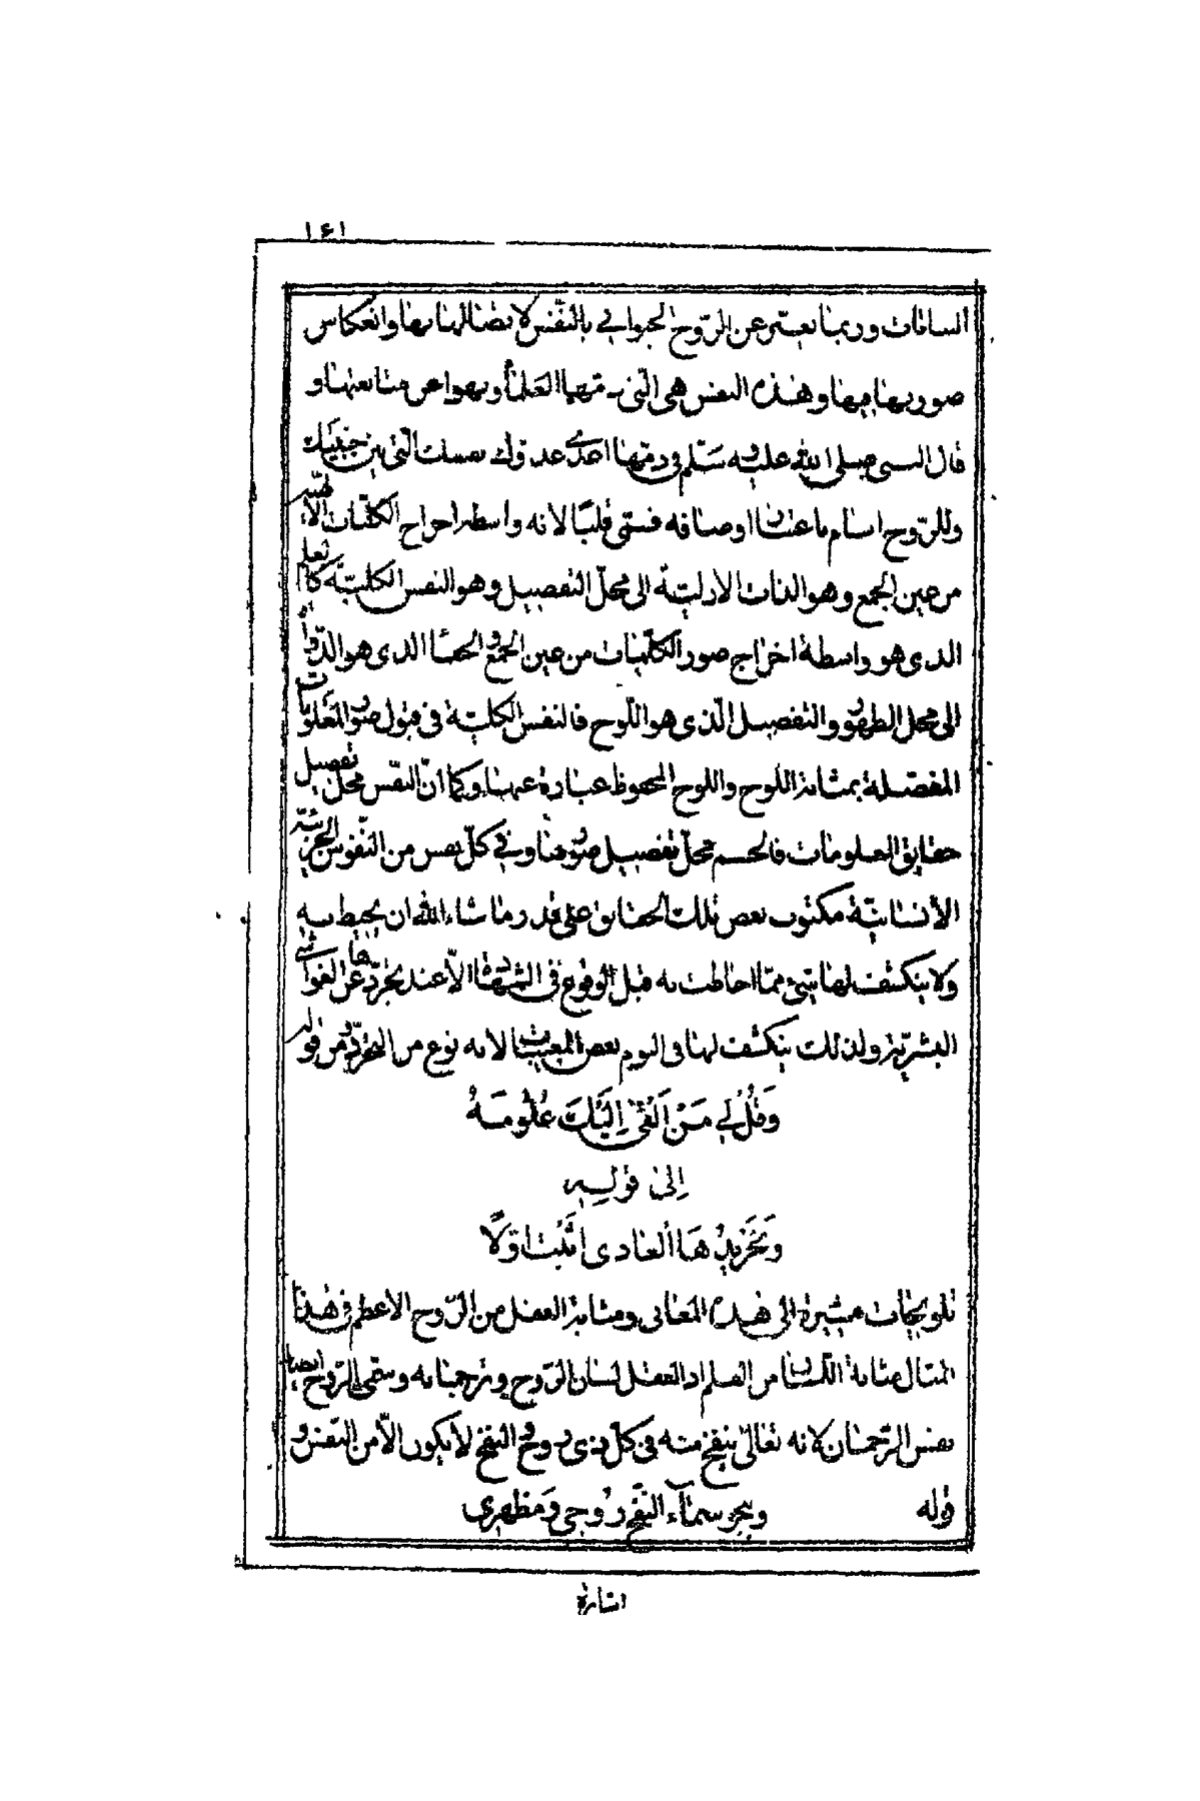 ١٤١
السابقات وربما يعبر عن الروح الحيواني بالنفس لاتصالها بها وانعكاس
صورتها فيها وهذه النفس هي التي نهى العلماء عن متابعتها و
قال النبي صلى الله عليه وسلم في ذمها اعدى عدوك نفسك التي بين جنبيك
وللروح اسام باعتبار اوصافه فسمي قلبا لانه واسطة اخراج الكليات الالهية
من عين الجمع وهو الذات الازلية الى محل التفصيل وهو النفس الكلية كالقلم
الذي هو واسطة اخراج صور الكليات من عين الجمع الذي هو الدواة
الى محل الظهور والتفصيل الذي هو اللوح فالنفس الكلية في قبول صور المعلومات
المفصلة بمثابة اللوح واللوح المحفوظ عبارة عنها وكما ان النفس محل تفصيل
حقايق المعلومات فالجسم محل تفصيل صورها وفي كل نفس من النفوس الجزئية
الأنسانية مكتوب بعض تلك الحقايق على قدر ما شاء الله ان يحيط به
ولا ينكشف لها شيء مما احاطت به قبل الوقوع في الشهادة الا عند تجردها عن الغواشي
البشرية ولذلك ينكشف لها في النوم بعض المغيبات لانه نوع من التجرد ومن قوله
وَقُلْ لِي مَنْ اَلْقَىٰ اِلَيْكَ عُلُومَهُ
اِلىٰ قوله
وَتَجْرِيدُهَا العادي اثبت اولا
تلويحات مشيرة الى هذه المعاني ومثابة العقل من الروح الاعظم في هذا
المثال مثابة اللسان من القلم اذ العقل لسان الروح وترجمانه وسمي الروح ايضا
نفس الرحمان لانه تعالى ينفخ منه في كل ذي روح والنفخ لا يكون الا من النفس و
قوله وبي جرّ سماء النفخ روحي ومظهري
اشارة